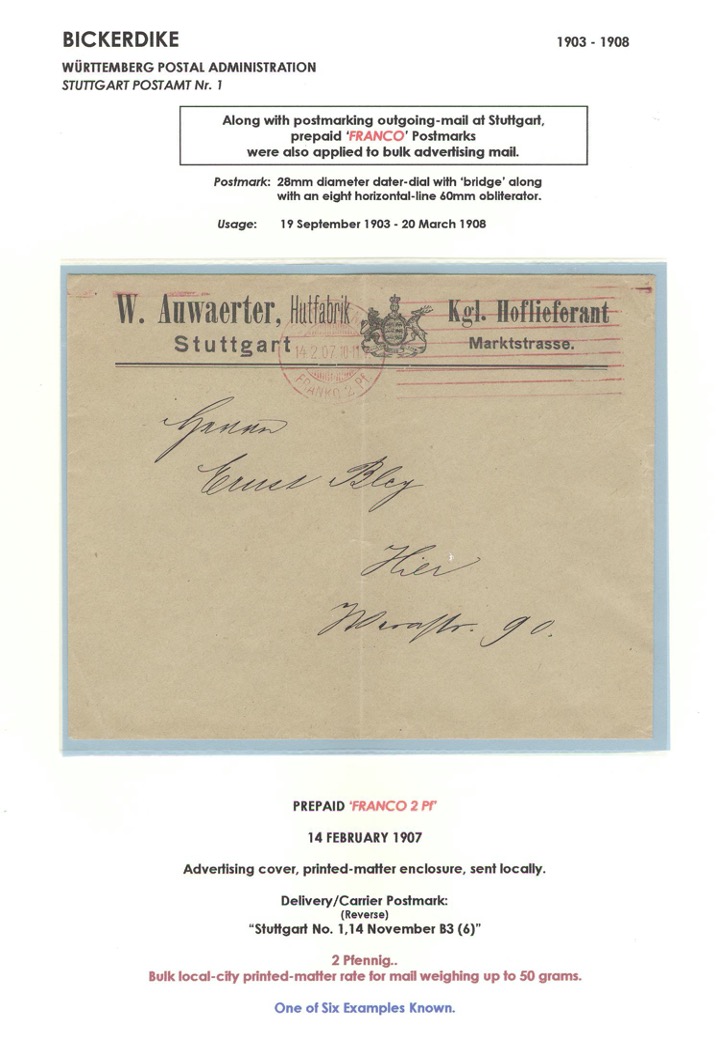 BICKERDIKE 1903 - 1908
WÜRTTEMBERG POSTAL ADMINISTRATION
STUTTGART POSTAMT Nr. 1
Along with postmarking outgoing-mail at Stuttgart,
prepaid ‘FRANCO’ Postmarks
were also applied to bulk advertising mail.
Postmark: 28mm diameter dater-dial with ‘bridge’ along
with an eight horizontal-line 60mm obliterator.
Usage: 19 September 1903 - 20 March 1908
W. Auwaerter, Hutfabrik Kgl. Hoflieferant
Stuttgart Marktstrasse.
14.2.07.10-11
FRANKO 2 Pf
Herrn
Ernst Bley
Hier
Werastr. 90.
PREPAID ‘FRANCO 2 Pf’
14 FEBRUARY 1907
Advertising cover, printed-matter enclosure, sent locally.
Delivery/Carrier Postmark:
(Reverse)
“Stuttgart No. 1,14 November B3 (6)”
2 Pfennig..
Bulk local-city printed-matter rate for mail weighing up to 50 grams.
One of Six Examples Known.